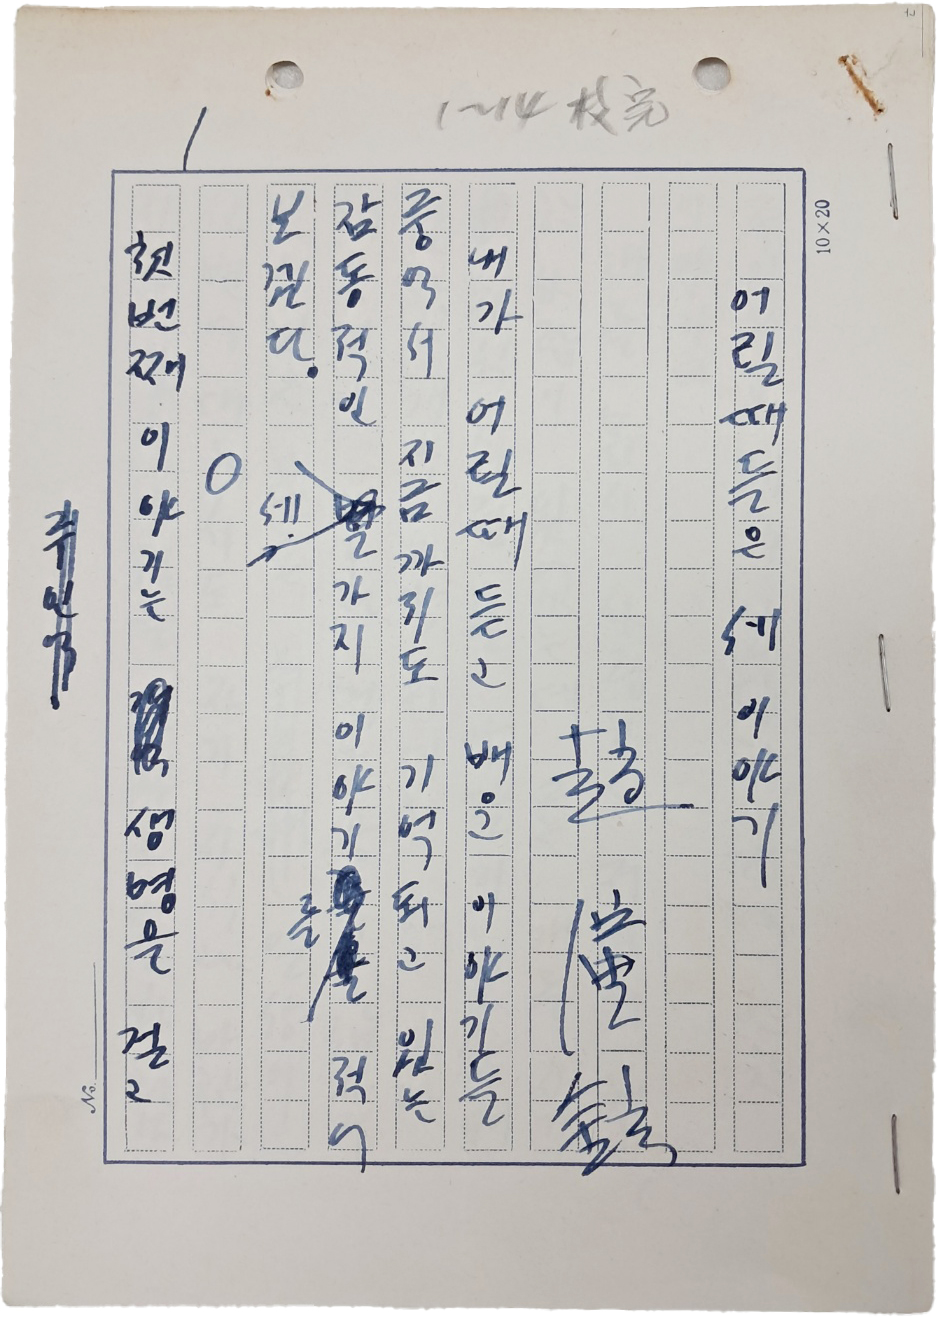 10×20
1~14
어릴때 들은 세 이야기
내가 어릴때 듣고 배운 이야기들
중에서 지금까지도 기억되고 있는
감동적인 세 가지 이야기를 적어
보겠다.
첫번째 이야기는 생명을 걸고
No.